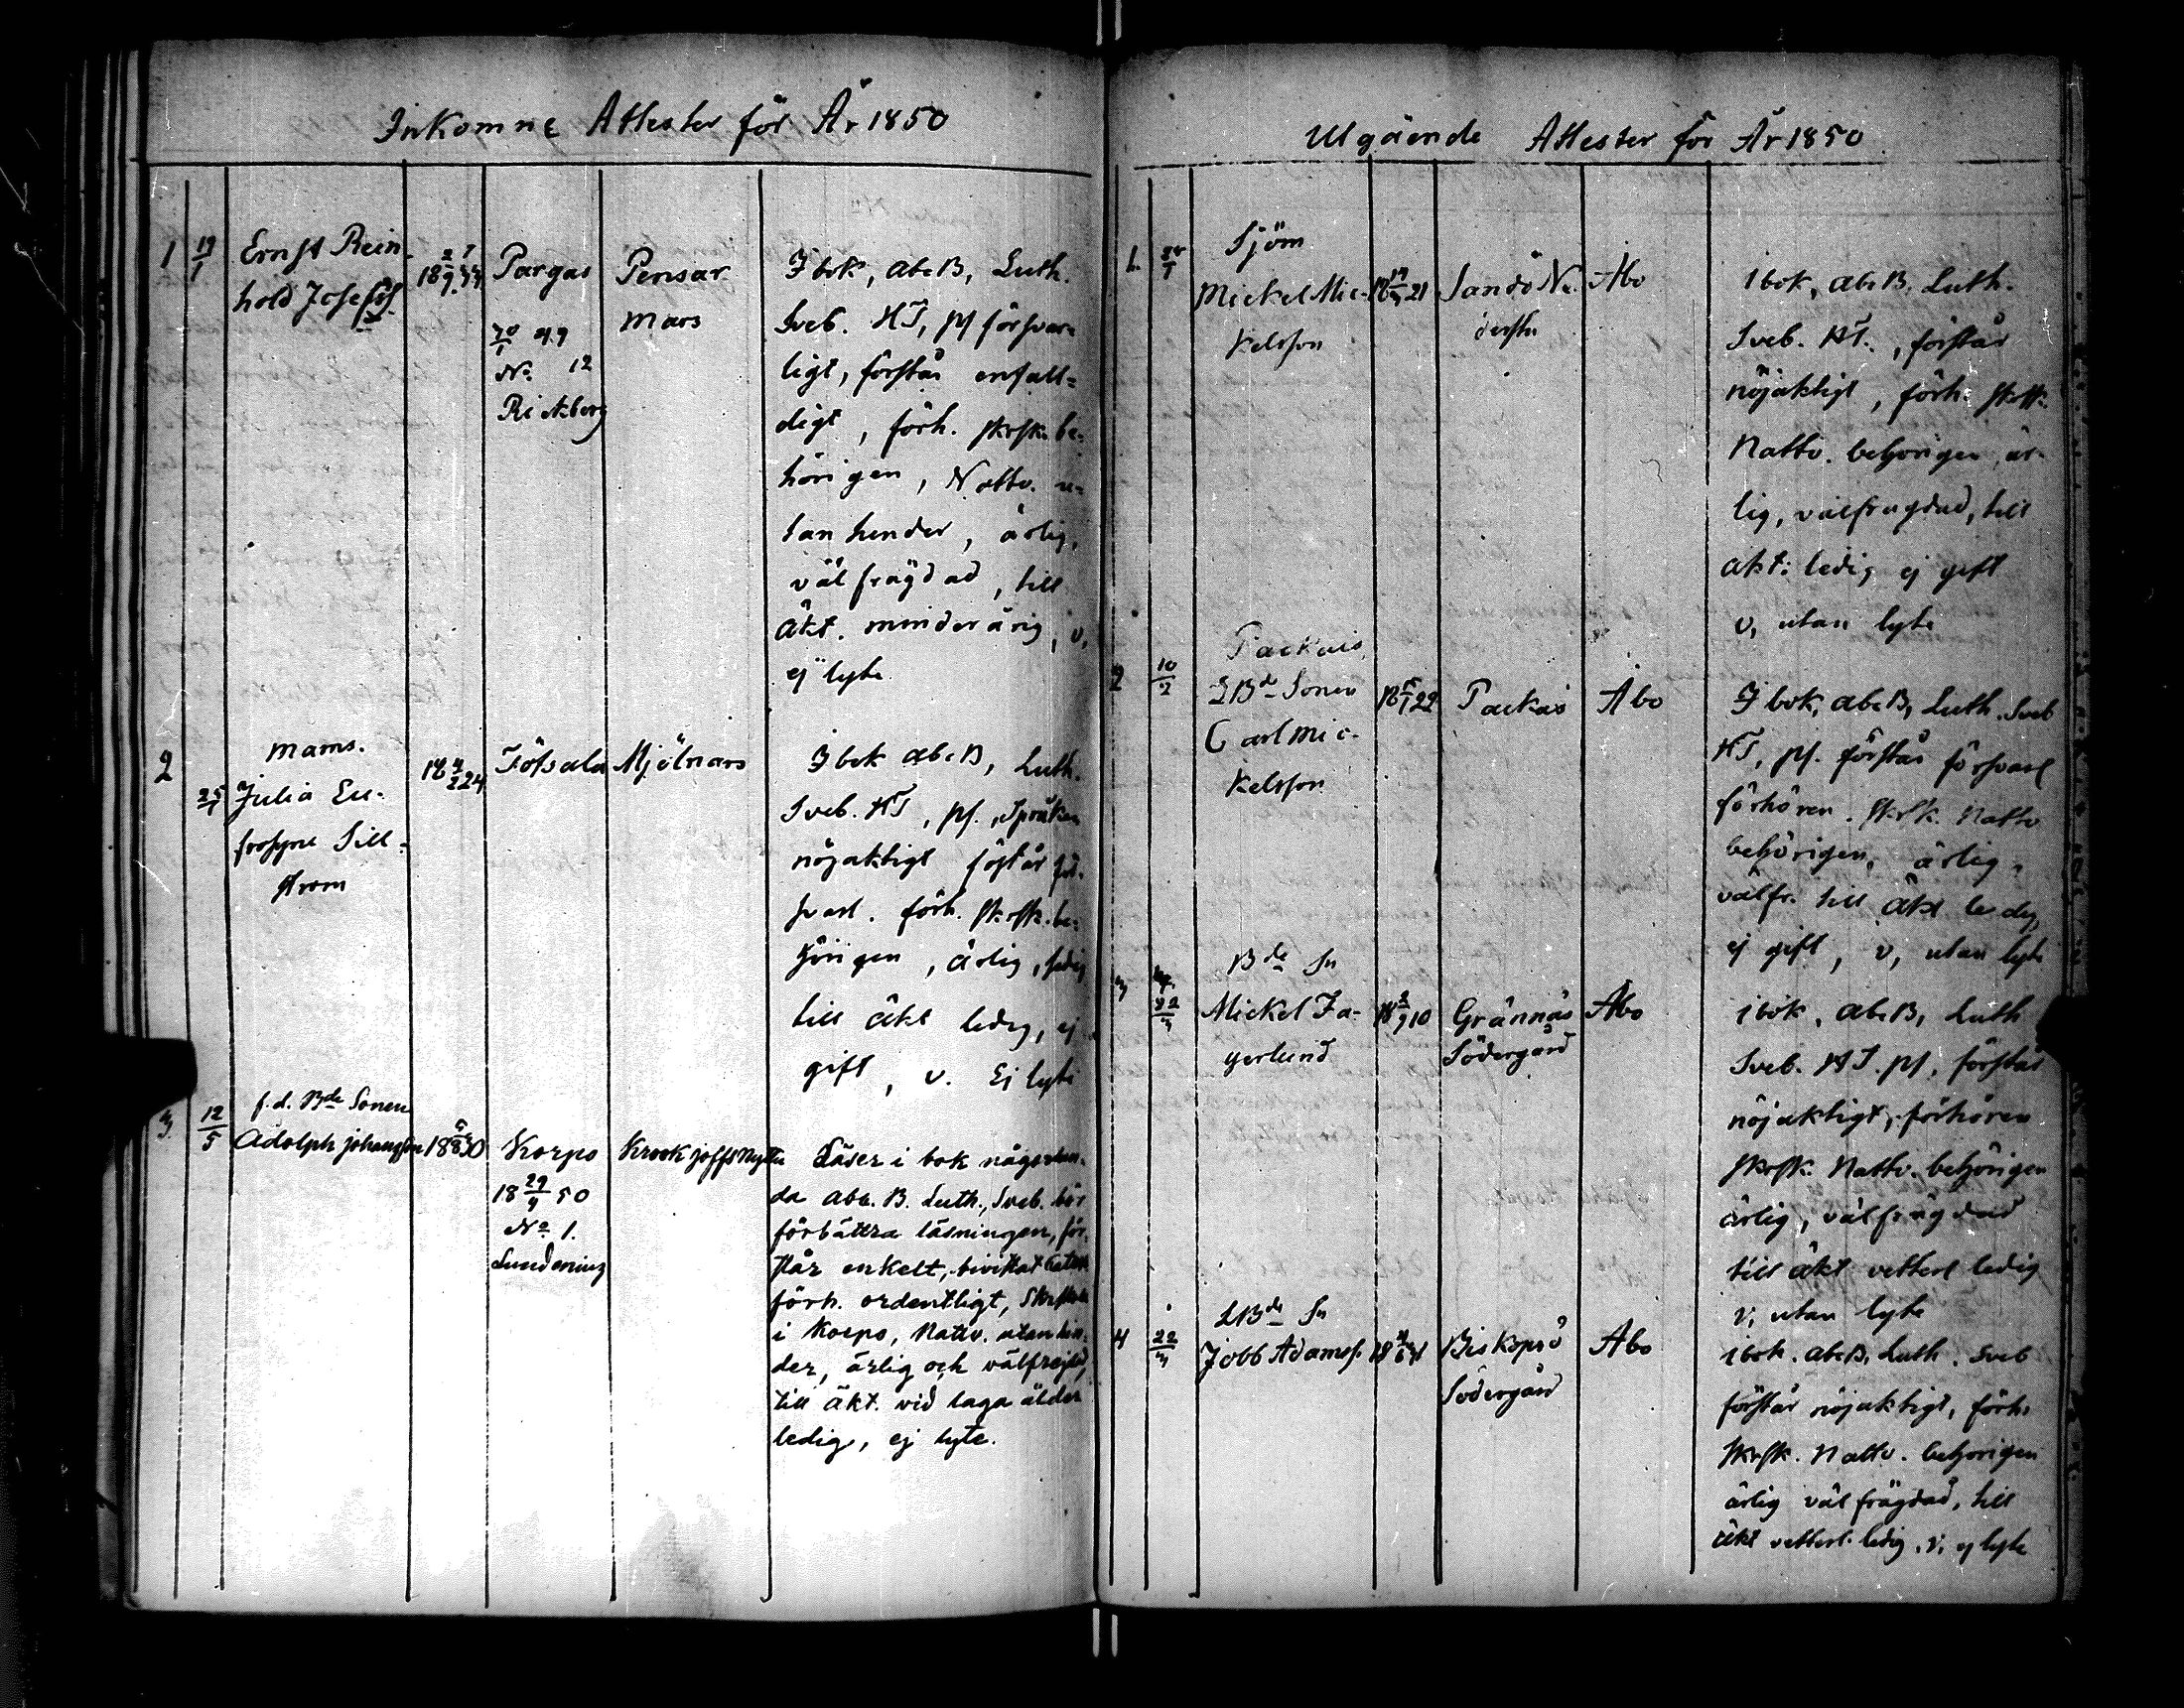 Inkomne Attester för År 1850
1 19/1 Ernst Rein-
hold Josefss.
Pargas
No 12
Pensar
Mars
I bok, abcB, Luth.
Sveb. HT, ps försvar-
ligt, förstår enfall-
digt, förh. skrsk. be-
hörigen, Nattv. u-
tan hinder, ärlig,
välfrägdad, till
äkt. minderårig, v,
ej lyte
2 25/1 Mams.
Julia Eu-
frosyne Sill-
strom
18 4/2 24 Töfsala Mjölnars
I bok abcB, Luth.
Sveb. HT, ps.
nöjaktigt
svarl. förh. skrsk. be-
hörigen, ärlig,
till äkt ledig, ej
gift, v. Ej lyte
3. 12/5 f.d. Bde Sonen
Adolph Johansson
Korpo
18 29/4 50
No 1.
Lundening
Läser i bok någorlun-
da abc. B. Luth., Sveb. bör
förbättra läsningen, för
står enkelt, bivistat
förh. ordentligt,
i Korpo, Nattv. utan hin-
der, ärlig och välfrejdad,
till äkt. vid laga ålder
ledig, ej lyte.
Utgående Attester för År 1850
1. Sjöm
Mickel Mic-
kelsson
Sandö Åbo
i bok, abcB, Luth.
Sveb. HT., förstår
nöjaktigt, förh. skrsk.
Nattv. behörigen, är-
lig, välfragdad, till
äkt: ledig ej gift
v, utan lyte
2 10/2 Packais
LBde Sonen
Carl Mic-
kelsson
Packais Åbo
I bok, abcB, Luth. Sveb
HT, ps. förstår försvarl
förhören. skrsk. Nattv
behörigen, ärlig,
välfr. till äkt ledig,
ej gift, v, utan lyte
3 22/3 Bde Sn
Mickel Fa-
gerlund
Grännäs
Södergård
Åbo
i bok, abcB, Luth
Sveb. HT. ps, förstår
nöjaktigt, förhören
skrsk. Nattv. behörigen
ärlig, välfrägdad
till äkt vetterl ledig
v, utan lyte
4 22/3 LBde Sn
Jobb Adamss.
Biskopsö
Södergård
Åbo
i bok. abcB, Luth. Sveb
förstår nöjaktigt, förh.
skrsk. Nattv. behorigen
ärlig välfrägdad, till
äkt vetterl. ledig, v, ej lyte